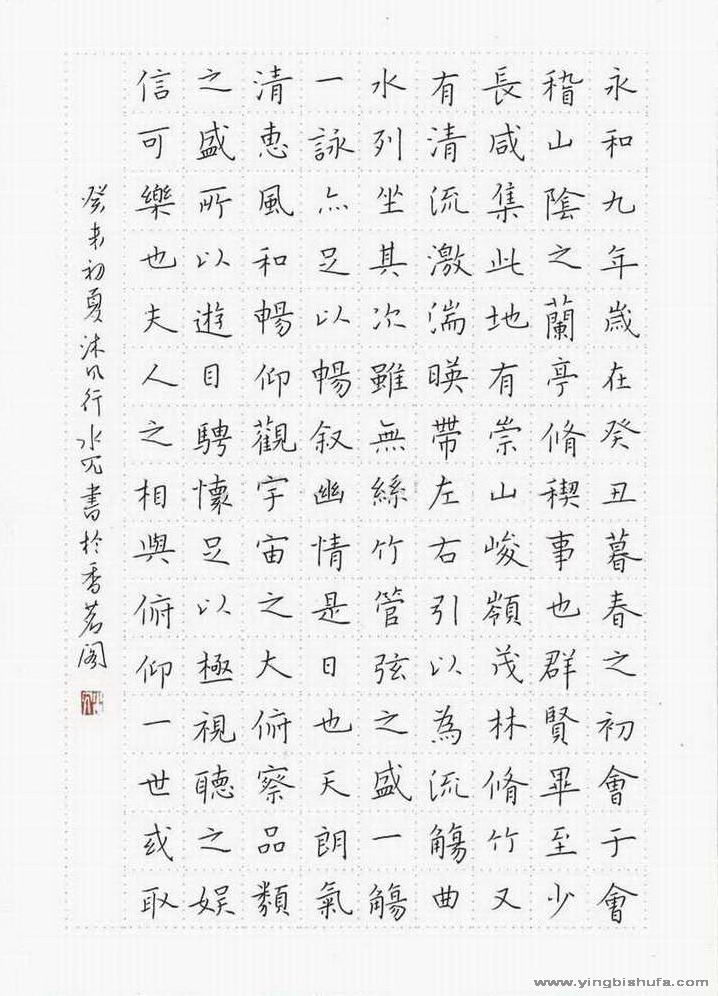 永和九年歲在癸丑暮春之初會于會
稽山陰之蘭亭脩稧事也群賢畢至少
長咸集此地有崇山峻嶺茂林脩竹又
有清流激湍暎帶左右引以為流觴曲
水列坐其次雖無絲竹管弦之盛一觴
一詠亦足以暢叙幽情是日也天朗氣
清惠風和暢仰觀宇宙之大俯察品類
之盛所以遊目騁懷足以極視聽之娱
信可樂也夫人之相與俯仰一世或取
癸未初夏沐风行水書於香茗阁
www.yingbishufa.com